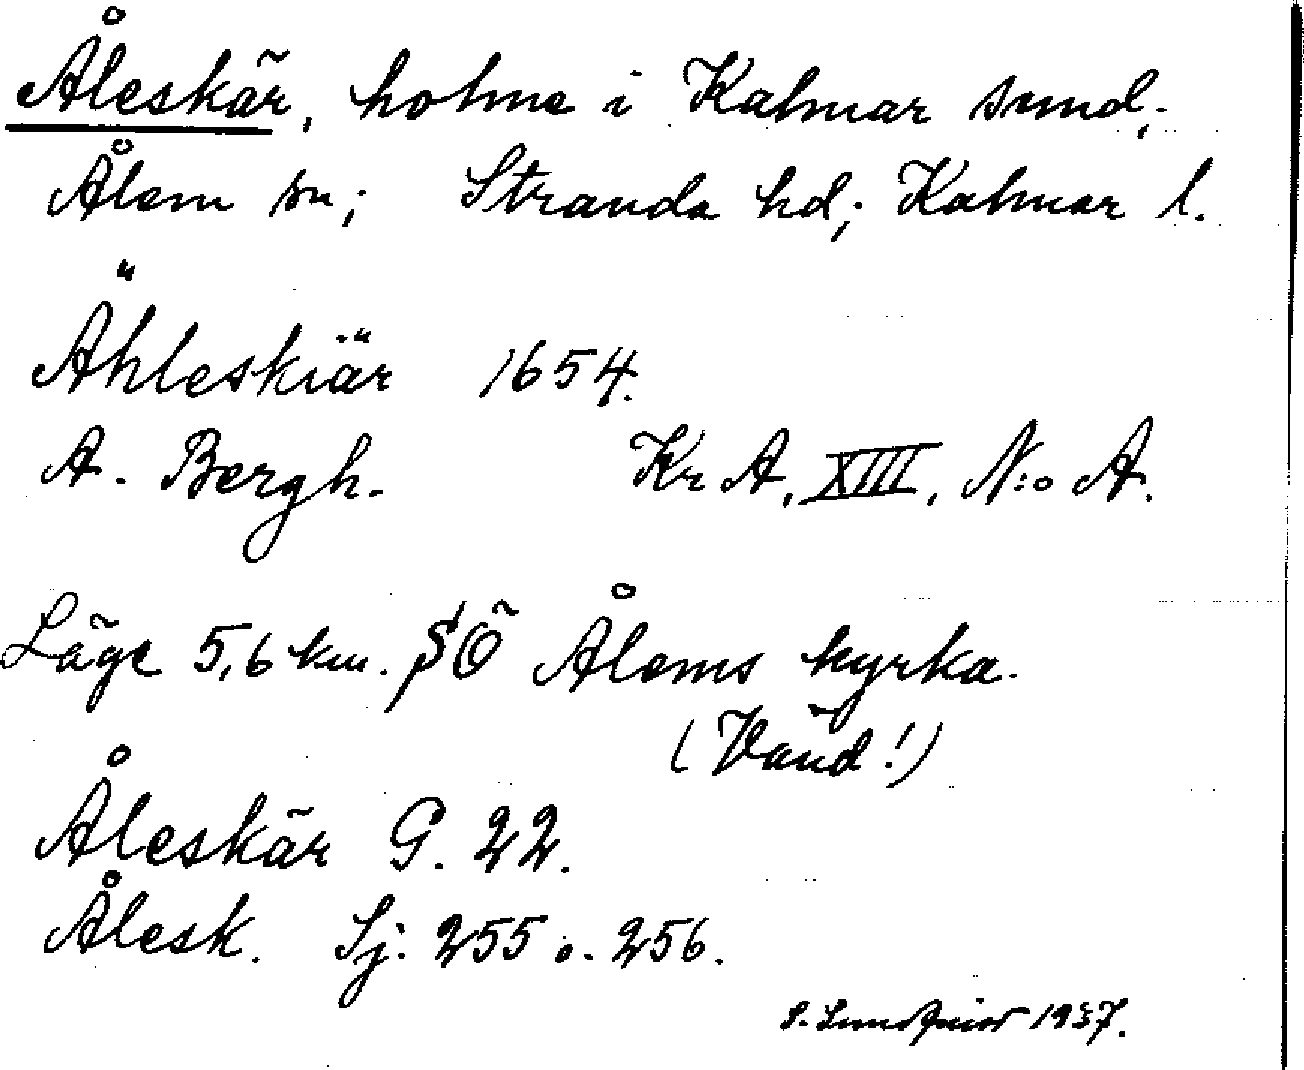 Åleskär, holme i Kalmar sund;
Ålem sn; Stranda hd; Kalmar l.
Ähleskiär 1654.
A. Bergh. Kr A, XIII, N:o A.
Läge 5,6 km. SÖ Ålems kyrka.
(Vänd!)
Åleskär G. 22.
Ålesk. Sj. 255 o. 256.
S. 1937.